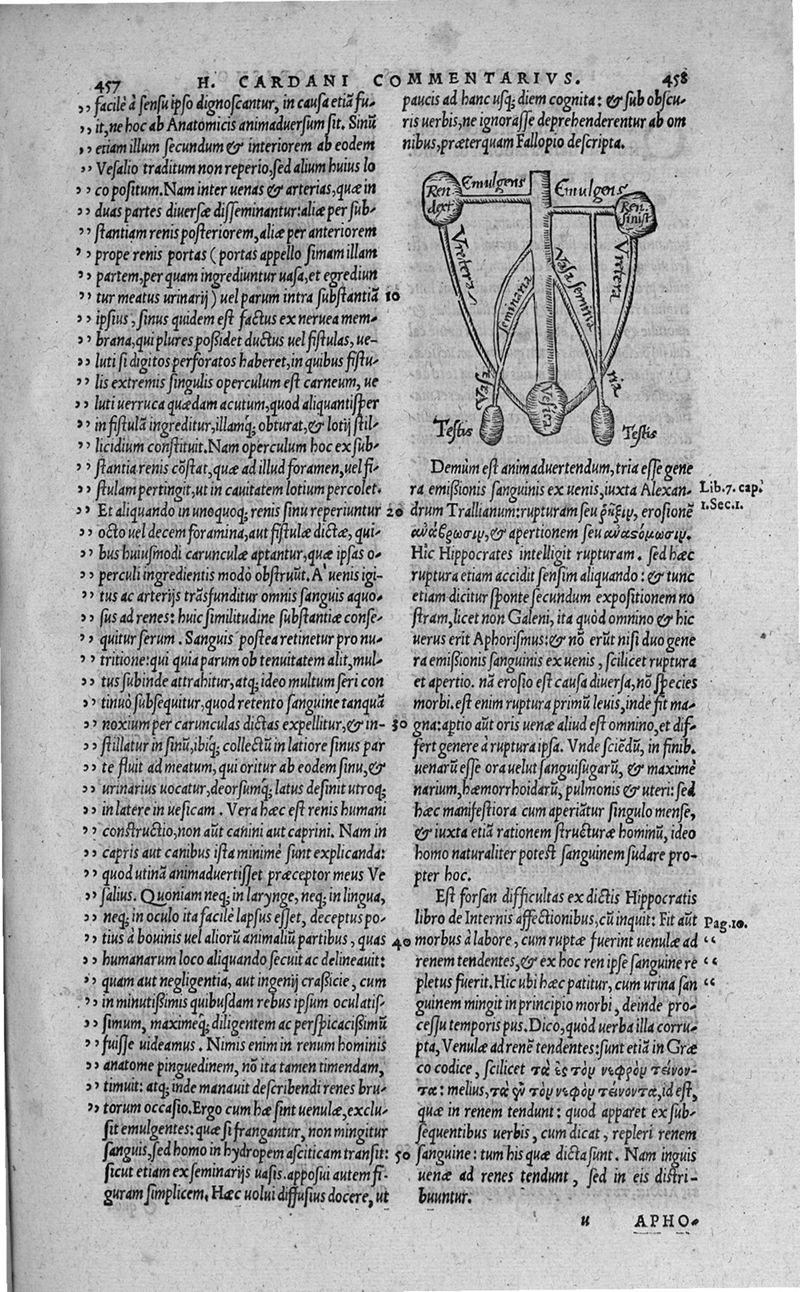 457 H. CARDANI COMMENTARIVS. 458
,, facilè à sensu ipso dignoscantur, in causa etiā fu-
,, it, ne hoc ab Anatomicis animaduersum sit. Sinū
,, etiam illum secundum & interiorem ab eodem
,, Vesalio traditum non reperio, sed alium huius lo
,, co positum. Nam inter uenas & arterias, quæ in
,, duas partes diuersæ disseminantur: aliæ per sub-
,, stantiam renis posteriorem, aliæ per anteriorem
,, prope renis portas (portas appello simam illam
,, partem, per quam ingrediuntur uasa, et egrediun
,, tur meatus urinarij) uel parum intra substantiā 10
,, ipsius, sinus quidem est factus ex neruea mem-
,, brana, qui plures possidet ductus uel fistulas, ue-
,, luti si digitos perforatos haberet, in quibus fistu-
,, lis extremis singulis operculum est carneum, ue
,, luti uerruca quædam acutum, quod aliquantisper
,, in fistulā ingreditur, illamq; obturat, & lotij stil-
,, licidium constituit. Nam operculum hoc ex sub-
,, stantia renis cōstat, quæ ad illud foramen, uel fi-
,, stulam pertingit, ut in cauitatem lotium percolet.
,, Et aliquando in unoquoq; renis sinu reperiuntur 20
,, octo uel decem foramina, aut fistulæ dictæ, qui-
,, bus huiusmodi carunculæ aptantur, quæ ipsas o-
,, perculi ingredientis modò obstruūt. A' uenis igi-
,, tus ac arterijs trāsfunditur omnis sanguis aquo-
,, sus ad renes: huic similitudine substantiæ conse-
,, quitur serum. Sanguis postea retinetur pro nu-
,, tritione: qui quia parum ob tenuitatem alit, mul-
,, tus subinde attrahitur, atq; ideo multum seri con
,, tinuò subsequitur, quod retento sanguine tanquā
,, noxium per carunculas dictas expellitur, & in- 30
,, stillatur in sinū, ibiq; collectū in latiore sinus par
,, te fluit ad meatum, qui oritur ab eodem sinu, &
,, urinarius uocatur, deorsumq; latus desinit utroq;
,, in latere in uesicam. Vera hæc est renis humani
,, constructio, non aūt canini aut caprini. Nam in
,, capris aut canibus ista minimè sunt explicanda:
,, quod utinā animaduertisset præceptor meus Ve
,, salius. Quoniam neq; in larynge, neq; in lingua,
,, neq; in oculo ita facilè lapsus esset, deceptus po-
,, tius à bouinis uel aliorū animaliū partibus, quas 40
,, humanarum loco aliquando secuit ac delineauit:
,, quam aut negligentia, aut ingenij crassicie, cum
,, in minutissimis quibusdam rebus ipsum oculatis-
,, simum, maximeq; diligentem ac perspicacissimū
,, fuisse uideamus. Nimis enim in renum hominis
,, anatome pinguedinem, nō ita tamen timendam,
,, timuit: atq; inde manauit describendi renes bru-
,, torum occasio. Ergo cum hæ sint uenulæ, exclu-
sit emulgentes: quæ si frangantur, non mingitur
sanguis, sed homo in hydropem asciticam transit: 50
sicut etiam ex seminarijs uasis. apposui autem fi-
guram simplicem. Hæc uolui diffusius docere, ut
paucis ad hanc usq; diem cognita: & sub obscu-
ris uerbis, ne ignorasse deprehenderentur ab om
nibus, præterquam Fallopio descripta.
Ren dext Emulgens Emulgens Ren sinist
Vreteræ Vasa seminaria Vasa seminaria Vreteræ
Vesica
Testis Testis
Demùm est animaduertendum, tria esse gene
ra emissionis sanguinis ex uenis, iuxta Alexan- Lib.7. cap.
drum Trallianum: rupturam seu ῥῆξιν, erosionē 1.Sec.1.
ἀνάβρωσιν, & apertionem seu ἀναστόμωσιν.
Hic Hippocrates intelligit rupturam. sed hæc
ruptura etiam accidit sensim aliquando: & tunc
etiam dicitur sponte secundum expositionem no
stram, licet non Galeni, ita quòd omnino & hic
uerus erit Aphorismus: & nō erūt nisi duo gene
ra emissionis sanguinis ex uenis, scilicet ruptura
et apertio. nā erosio est causa diuersa, nō species
morbi. est enim ruptura primū leuis, inde fit ma-
gna: aptio aūt oris uenæ aliud est omnino, et dif-
fert genere à ruptura ipsa. Vnde sciēdū, in finib.
uenarū esse ora uelut sanguisugarū, & maximè
narium, hæmorrhoidarū, pulmonis & uteri: sed
hæc manifestiora cum aperiātur singulo mense,
& iuxta etiā rationem structuræ hominū, ideo
homo naturaliter potest sanguinem sudare pro-
pter hoc.
Est forsan difficultas ex dictis Hippocratis
libro de Internis affectionibus, cū inquit: Fit aūt Pag.10.
morbus à labore, cum ruptæ fuerint uenulæ ad “
renem tendentes, & ex hoc ren ipse sanguine re “
pletus fuerit. Hic ubi hæc patitur, cum urina san “
guinem mingit in principio morbi, deinde pro-
cessu temporis pus. Dico, quòd uerba illa corru-
pta, Venulæ ad renē tendentes: sunt etiā in Græ
co codice, scilicet τὰ ἐς τὸν νεφρὸν τείνον-
τα: melius, τὰ ἐν τὸν νεφρὸν τείνοντα, id est,
quæ in renem tendunt: quod apparet ex sub-
sequentibus uerbis, cum dicat, repleri renem
sanguine: tum his quæ dicta sunt. Nam inguis
uenæ ad renes tendunt, sed in eis distri-
buuntur.
u APHO-